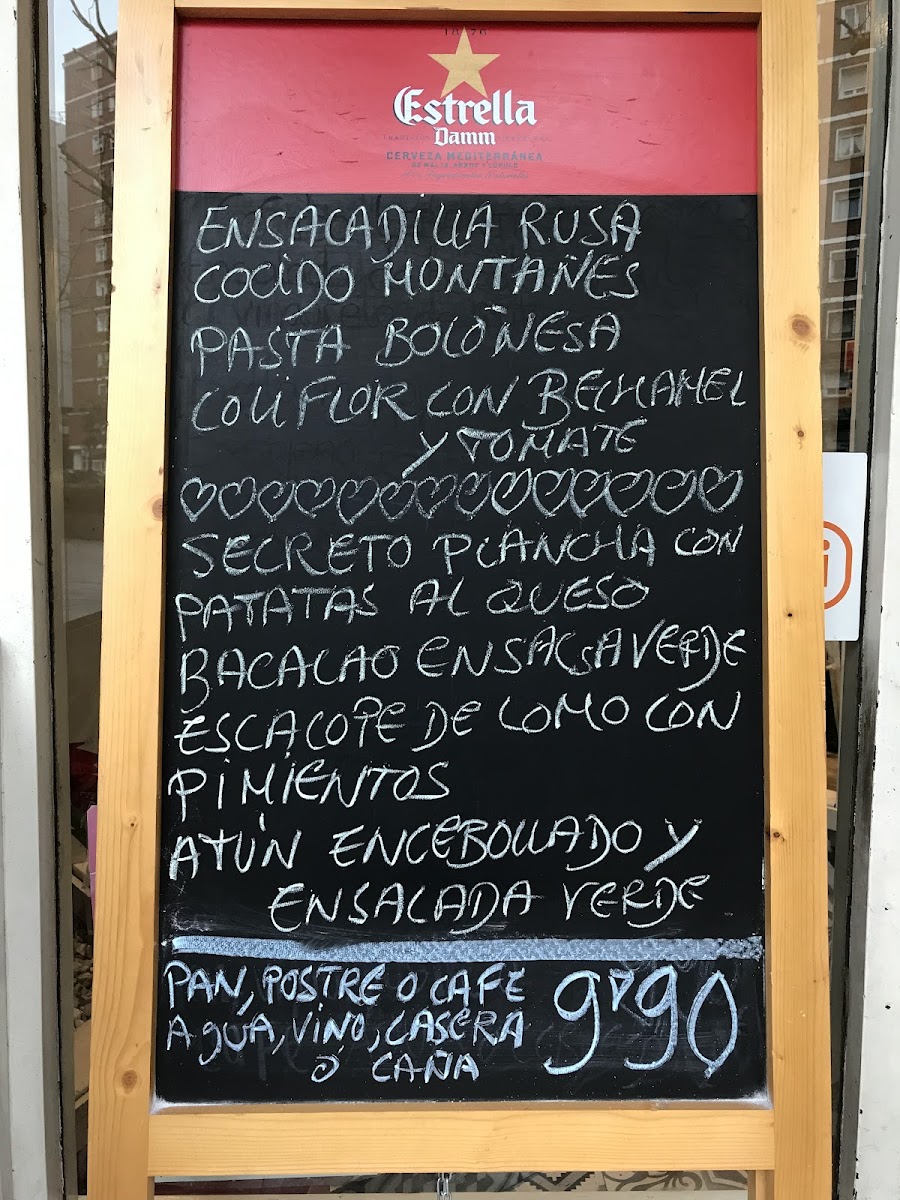 1876
Estrella
Damm
CERVEZA MEDITERRÁNEA
DE MALTA, ARROZ Y LÚPULO
ENSALADILLA RUSA
COCIDO MONTAÑES
PASTA BOLOÑESA
COLIFLOR CON BECHAMEL
Y TOMATE
SECRETO PLANCHA CON
PATATAS AL QUESO
BACALAO EN SALSA VERDE
ESCALOPE DE LOMO CON
PIMIENTOS
ATÚN ENCEBOLLADO Y
ENSALADA VERDE
PAN, POSTRE O CAFE
AGUA, VINO, CASERA
Ó CAÑA
9'90